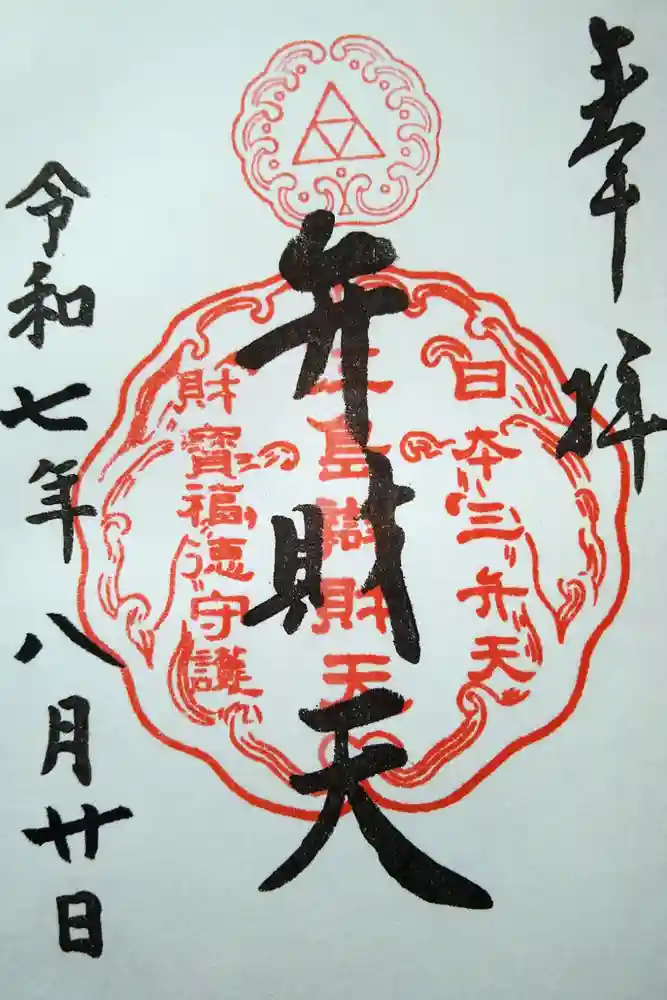 奉拝
日本三弁天
弁財天
島辯財天
財寶福徳守護
令和七年八月廿日